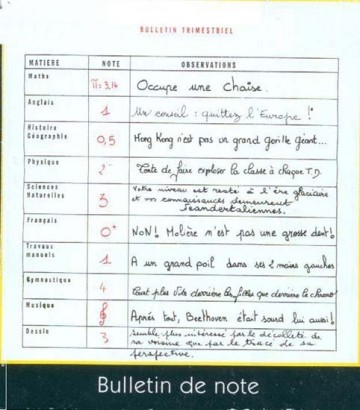 BULLETIN TRIMESTRIEL
MATIERE NOTE OBSERVATIONS
Maths π=3,14 Occupe une chaise.
Anglais 1 Un conseil : quittez l'Europe !
Histoire
Géographie 0,5 Hong Kong n'est pas un grand gorille géant...
Physique 2- Tente de faire exploser la classe à chaque T.D.
Sciences
Naturelles 3 Votre niveau est resté à l'ère glaciaire
et vos connaissances demeurent
neandertaliennes.
Français 0+ NON! Molière n'est pas une grosse dent!
Travaux
manuels 1 A un grand poil dans ses 2 mains gauches
Gymnastique 4 Court plus vite derrière les filles que derrière le chrono!
Musique Après tout, Beethoven était sourd lui aussi!
Dessin 3 Semble plus intéressé par le décolleté de
sa voisine que par le tracé de sa
perspective.
Bulletin de note